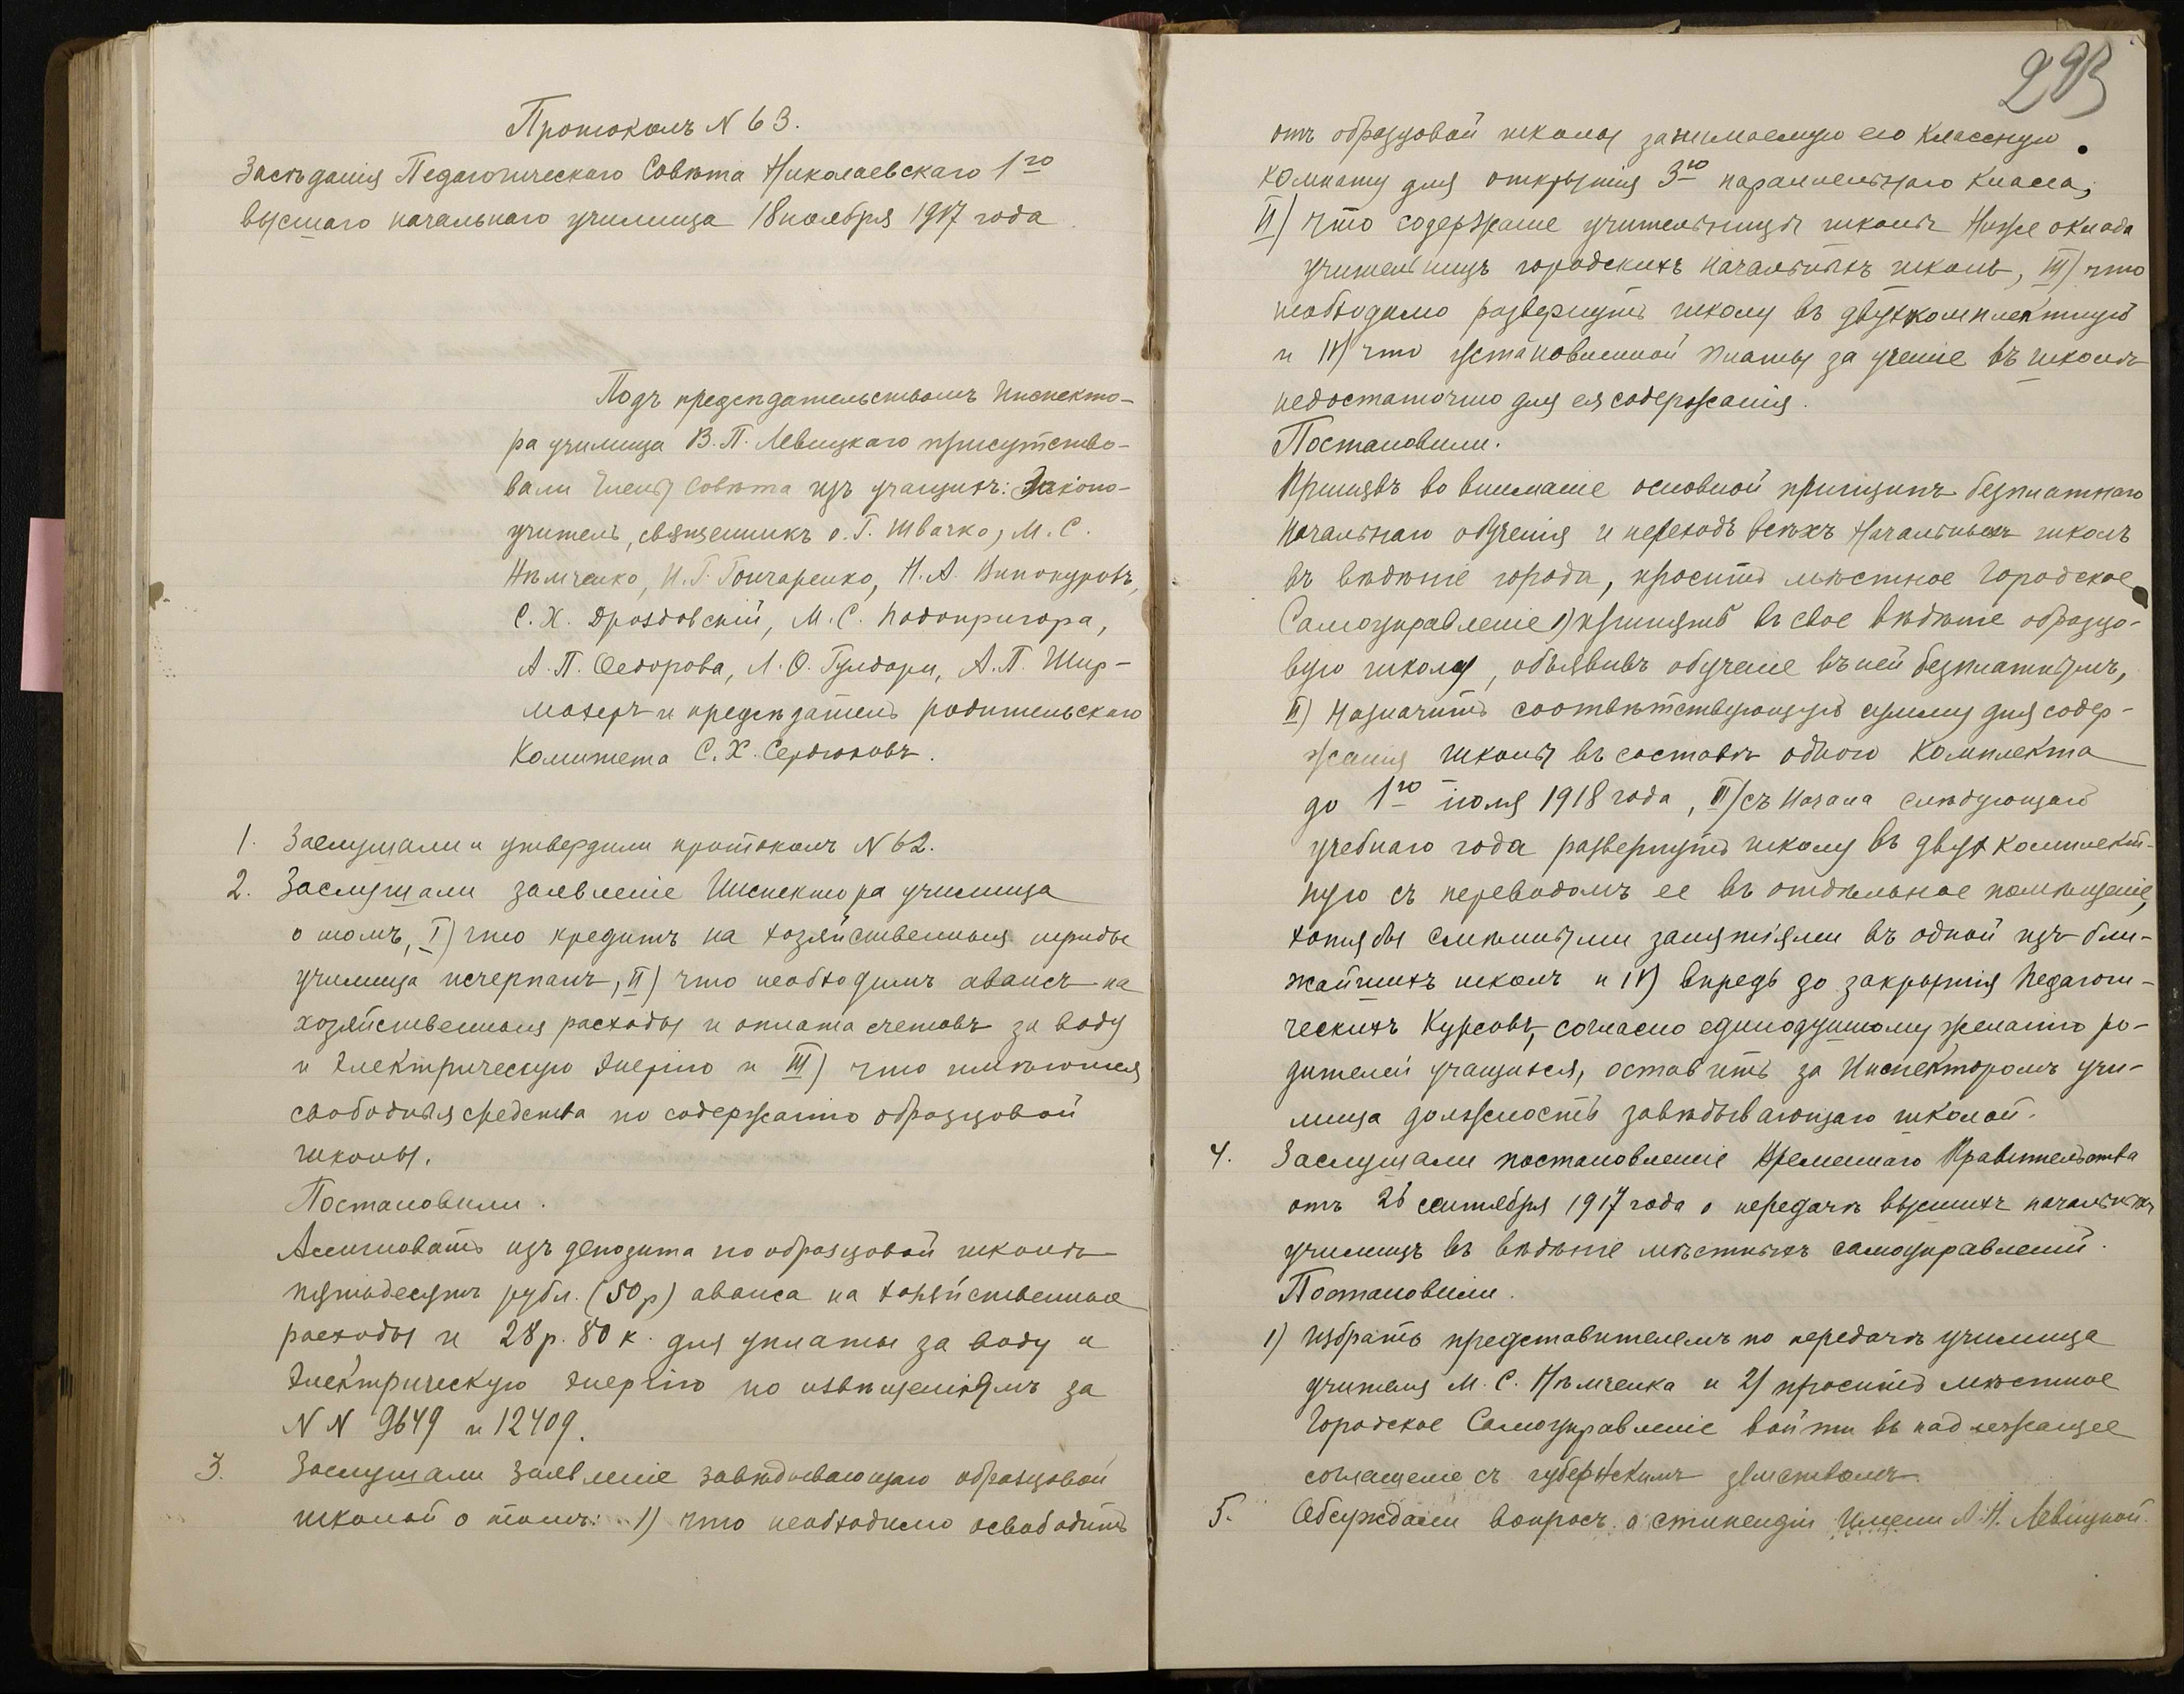 Протоколъ N 63.
Засѣданія Педагогическаго Совѣта Николаевскаго 1го
высшаго начальнаго училища 18 ноября 1917 года
Подъ предсѣдательствомъ Инспекто-
ра училища В. П. Левицкаго присутство-
вали Члены Совѣта изъ учащихъ: Законо-
учитель, священникъ о. Г. Швачко, М. С.
Нѣмченко, И. Г. Гончаренко, Н. А. Винокуровъ,
С. Х. Дроздовскій, М. С. Подопригора,
А. П. Федорова, Л. О. Гулдари, А. П. Шир-
махеръ и предсѣдатель родительскаго
Комитета С. Х. Сердюковъ.
1. Заслушали и утвердили протоколъ N 62.
2. Заслушали заявленіе Инспектора училища
о томъ, I) что кредитъ на хозяйственныя нужды
училища исчерпанъ, II) что необходимъ авансъ на
хозяйственныя расходы и оплата счетовъ за воду
и электрическую энергію и III) что имѣются
свободныя средства по содержанію образцовой
школы.
Постановили.
Ассигновать изъ депозита по образцовой школѣ
пятьдесятъ рубл. (50 р) аванса на хозяйственные
расходы и 28 р. 80 к. для уплаты за воду и
электрическую энергію по извѣщеніямъ за
N N 9649 и 12409.
3. Заслушали заявленіе завѣдывающаго образцовой
школой о томъ: 1) что необходимо освободить
293
отъ образцовой школы занимаемую ею классную
комнату для открытія 3го параллельнаго класса;
II) что содержаніе учительницы школы ниже оклада
учительницъ городскихъ начальныхъ школъ, III) что
необходимо развернуть школу въ двухкомплектную
и IV) что установленной платы за ученіе въ школѣ
недостаточно для ея содержанія.
Постановили.
Принявъ во вниманіе основной принципъ безплатнаго
начальнаго обученія и переходъ всѣхъ начальныхъ школъ
въ вѣдѣніе города, просить мѣстное Городское
Самоуправленіе 1) принять въ свое вѣдѣніе образцо-
вую школу, объявивъ обученіе въ ней безплатнымъ,
II) назначить соотвѣтствующую сумму для содер-
жанія школы въ составѣ одного комплекта
до 1го іюля 1918 года, III) съ начала слѣдующаго
учебнаго года развернуть школу въ двухкомплект-
ную съ переводомъ ее въ отдѣльное помѣщеніе,
хотя бы смѣнными занятіями въ одной изъ бли-
жайшихъ школъ и IV) впредь до закрытія Педагоги-
ческихъ Курсовъ, согласно единодушному желанію ро-
дителей учащихся, оставить за Инспекторомъ учи-
лища должность завѣдывающаго школой.
4. Заслушали постановленіе Временнаго Правительства
отъ 26 сентября 1917 года о передачѣ высшихъ начальныхъ
училищъ въ вѣдѣніе мѣстныхъ самоуправленій.
Постановили.
1) избрать представителемъ по передачѣ училища
учителя М. С. Нѣмченка и 2) просить мѣстное
Городское Самоуправленіе войти въ надлежащее
соглашеніе съ губернскимъ земствомъ
5. Обсуждали вопросъ о стипендіи имени Л. Н. Левицкой.